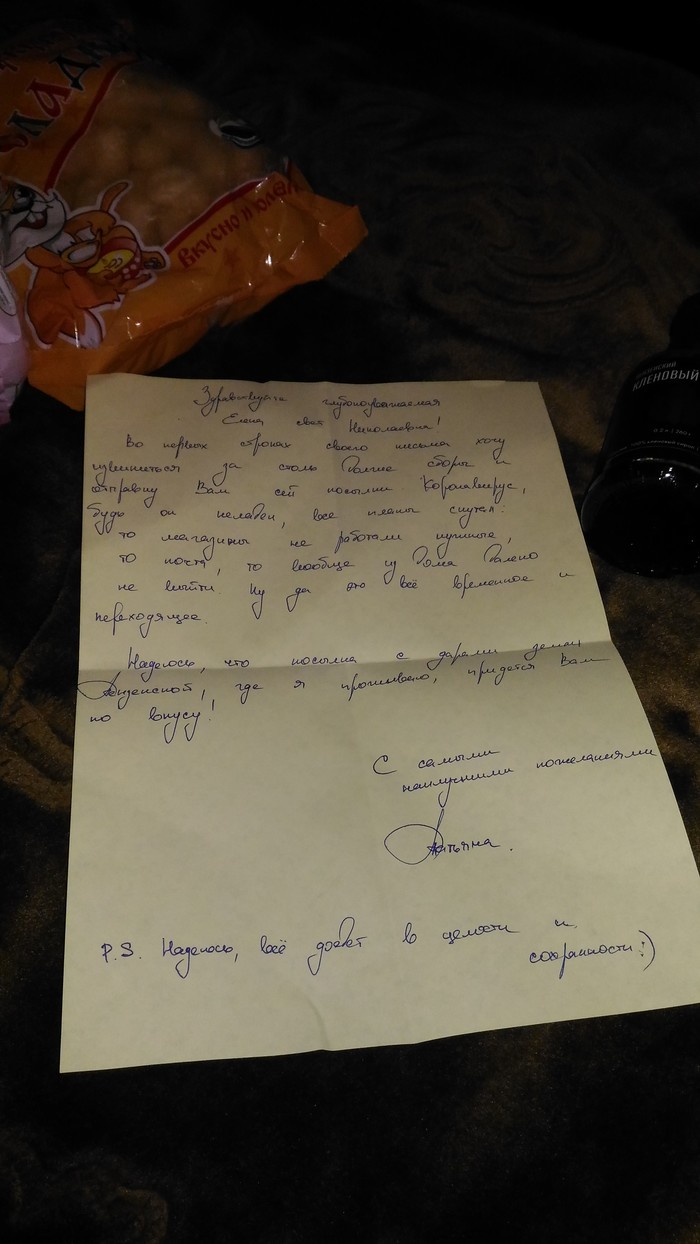 ЛАД
Вкусно и
КЛЕНОВЫЙ
Здравствуйте глубокоуважаемая
Елена свет Николаевна!
Во первых строках своего письма хочу
извиниться за столь долгие сборы и
отправку Вам сей посылки. Коронавирус,
будь он неладен, все планы спутал:
то магазины не работали нужные,
то почта, то вообще из дома далеко
не выйти. Ну да это всё временное и
переходящее.
Надеюсь, что посылка с дарами земли
Пензенской, где я проживаю, придется Вам
по вкусу!
С самыми
наилучшими пожеланиями
Татьяна.
P.S. Надеюсь, всё дойдет в целости и
сохранности:)